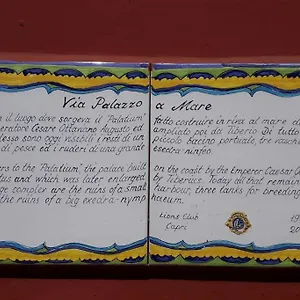 Via Palazzo a Mare
è il luogo dove sorgeva il "Palatium" fatto costruire in riva al mare d
eratore Cesare Ottaviano Augusto ed ampliato poi da Tiberio Di tutto
lesso sono oggi visibili i resti di un piccolo bacino portuale, tre vasche
di pesce ed i ruderi di una grande esedra-ninfeo
ers to the "Palatium", the palace built on the coast by the Emperor Caesar
tus and which was later enlarged by Tiberius. Today all that remain
ge complex are the ruins of a small harbour, three tanks for breeding
the ruins of a big exedra-nymp haeum.
Lions Club 19
Capri 20